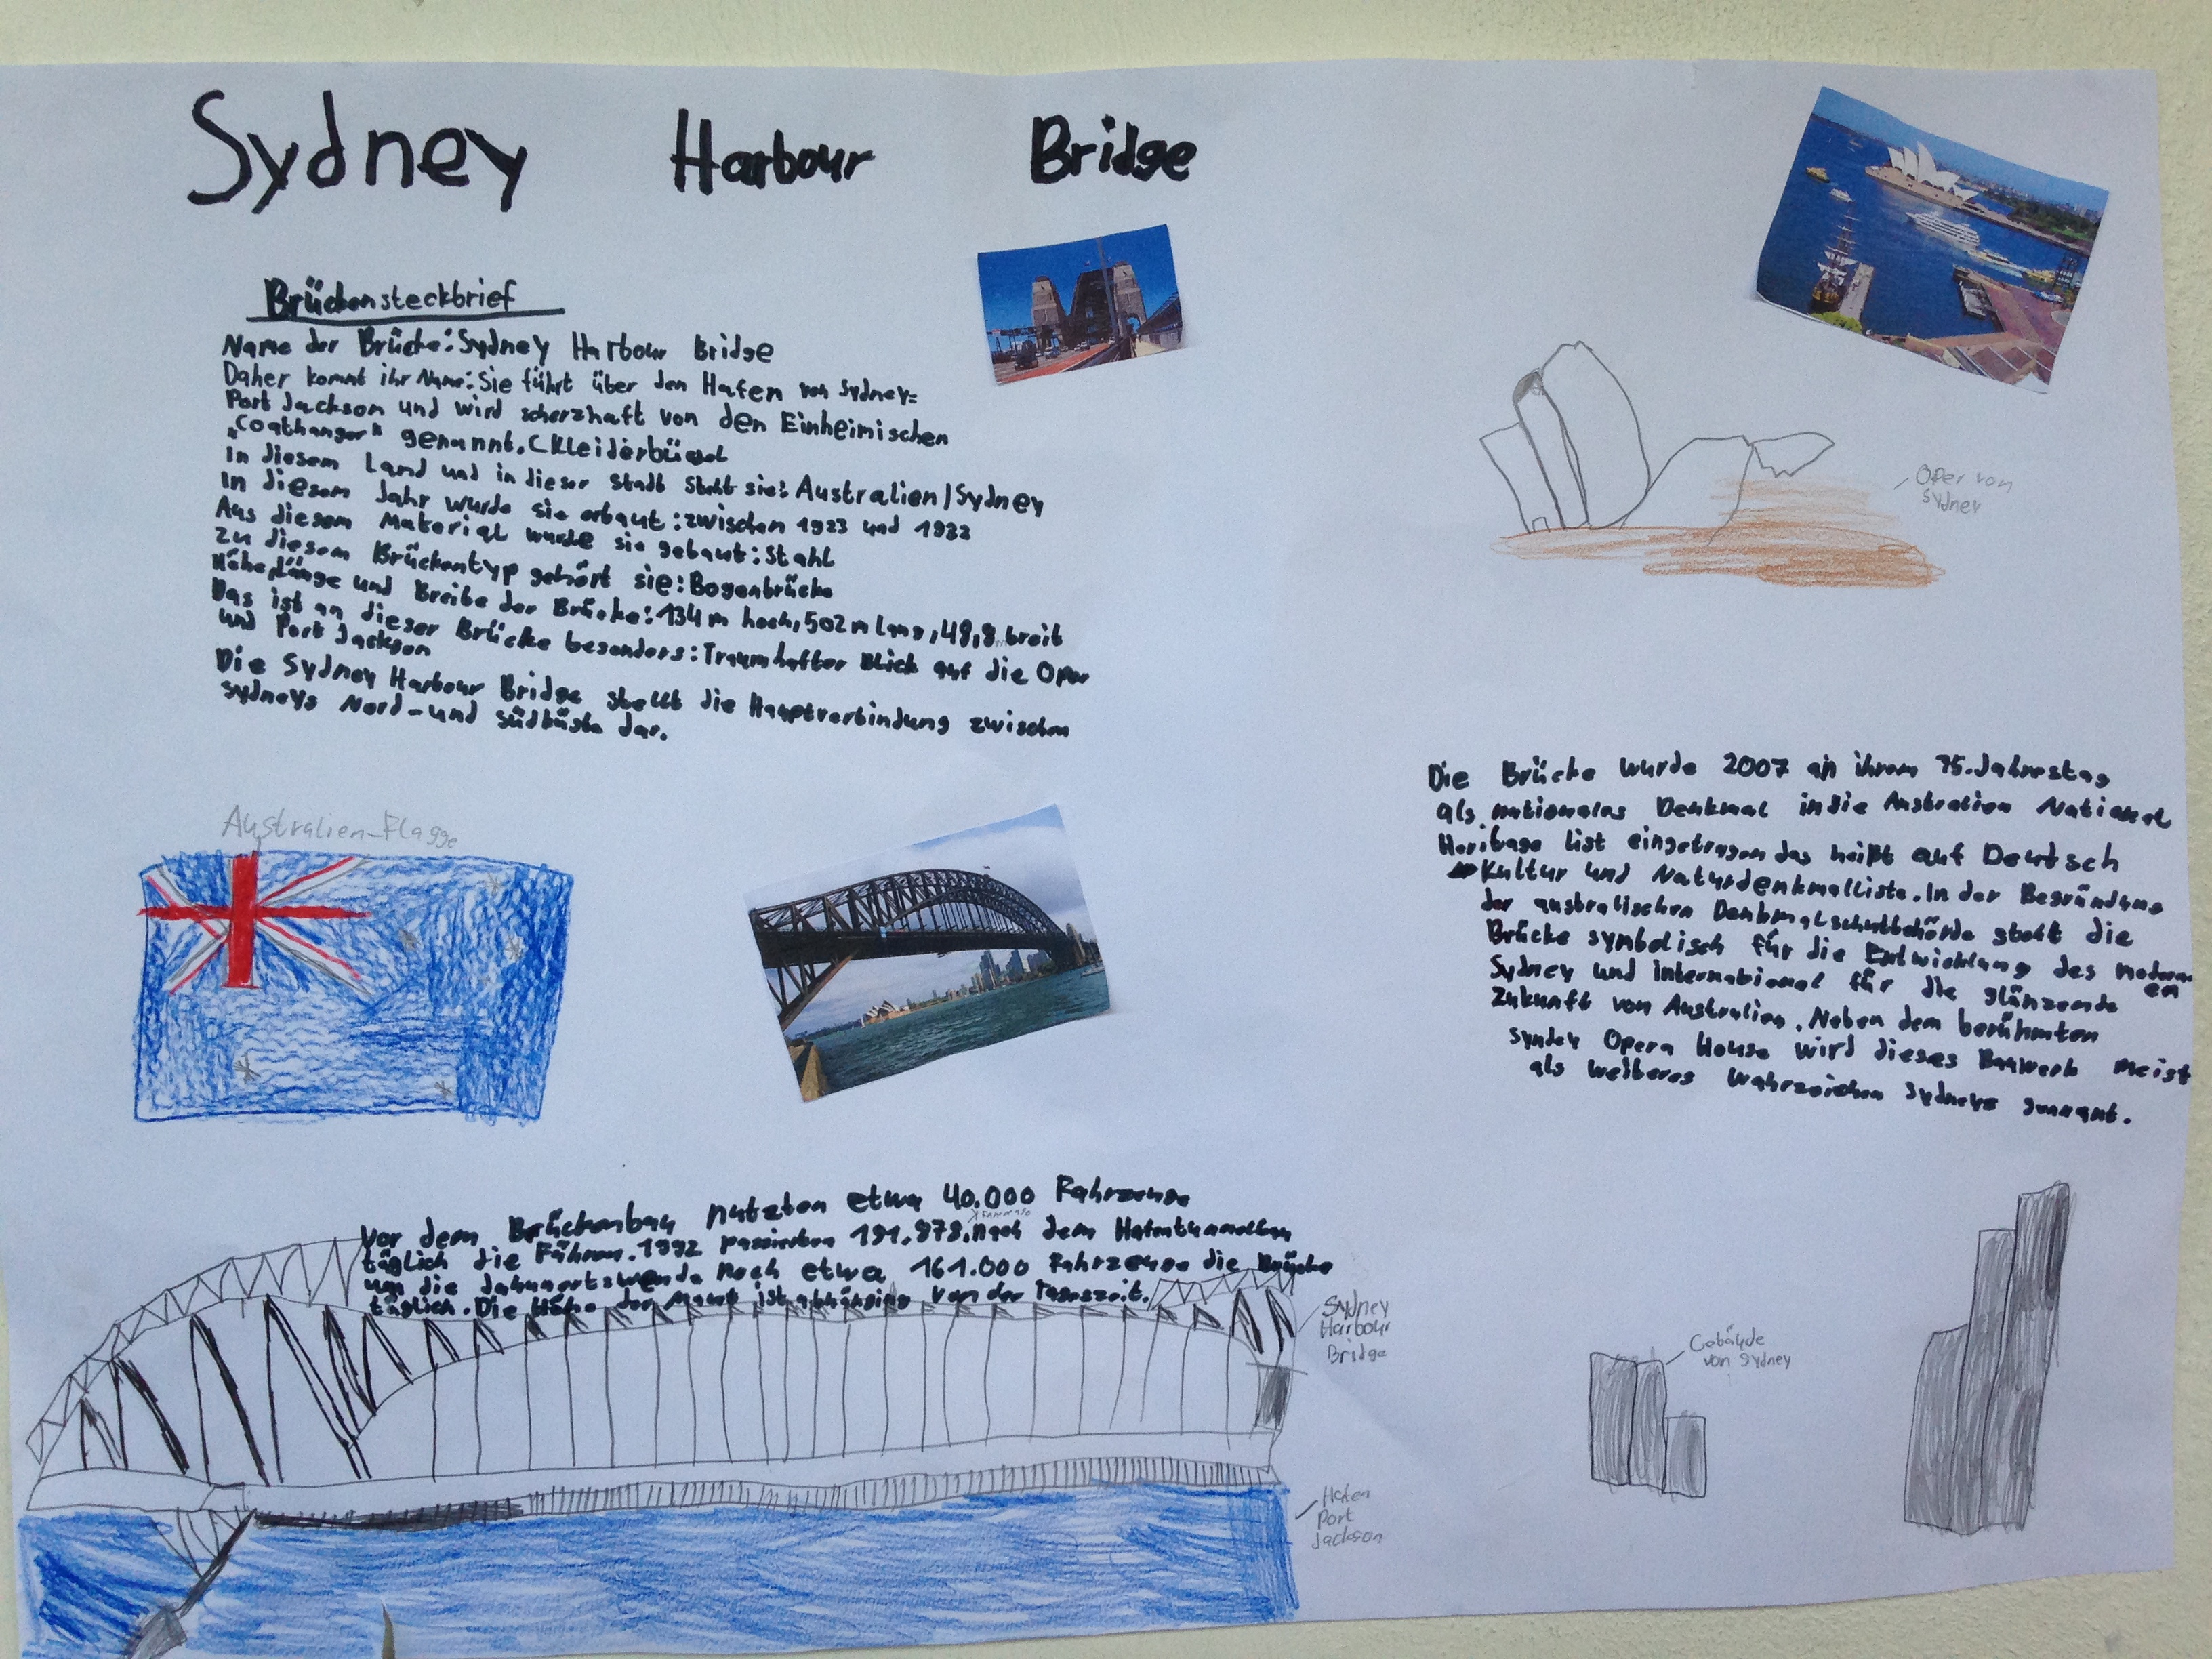 Sydney Harbour Bridge
Brückensteckbrief
Name der Brücke: Sydney Harbour Bridge
Daher kommt ihr Name: Sie führt über den Hafen von Sydney=
Port Jackson und wird scherzhaft von den Einheimischen
„Coathanger" genannt. (Kleiderbügel
In diesem Land und in dieser Stadt steht sie: Australien/Sydney
In diesem Jahr wurde sie erbaut: zwischen 1923 und 1932
Aus diesem Material wurde sie gebaut: Stahl
Zu diesem Brückentyp gehört sie: Bogenbrücke
Höhe, Länge und Breite der Brücke: 134 m hoch, 502 m lang, 48,8 m breit
Das ist an dieser Brücke besonders: Traumhafter Blick auf die Oper
und Port Jackson
Die Sydney Harbour Bridge stellt die Hauptverbindung zwischen
Sydneys Nord- und Südküste dar.
Oper von
Sydney
Australien-Flagge
Die Brücke wurde 2007 an ihrem 75. Jahrestag
als nationales Denkmal in die Australien National
Heritage list eingetragen das heißt auf Deutsch
Kultur und Naturdenkmalliste. In der Begründung
der australischen Denkmalschutbehörde steht die
Brücke symbolisch für die Entwicklung des modernen
Sydney und international für die glänzende
Zukunft von Australien. Neben dem berühmten
Syndey Opera House wird dieses Bauwerk meist
als weiteres Wahrzeichen Sydneys genannt.
Vor dem Brückenbau nutzten etwa 40.000 Fahrzeuge
täglich die Fähren. 1992 passierten 181.878. Nach dem Hafentunnelbau
um die Jahrhundertwende noch etwa 161.000 Fahrzeuge die Brücke
täglich. Die Höhe der Maut ist abhängig von der Tageszeit.
Sydney
Harbour
Bridge
Gebäude
von Sydney
Hafen
Port
Jackson